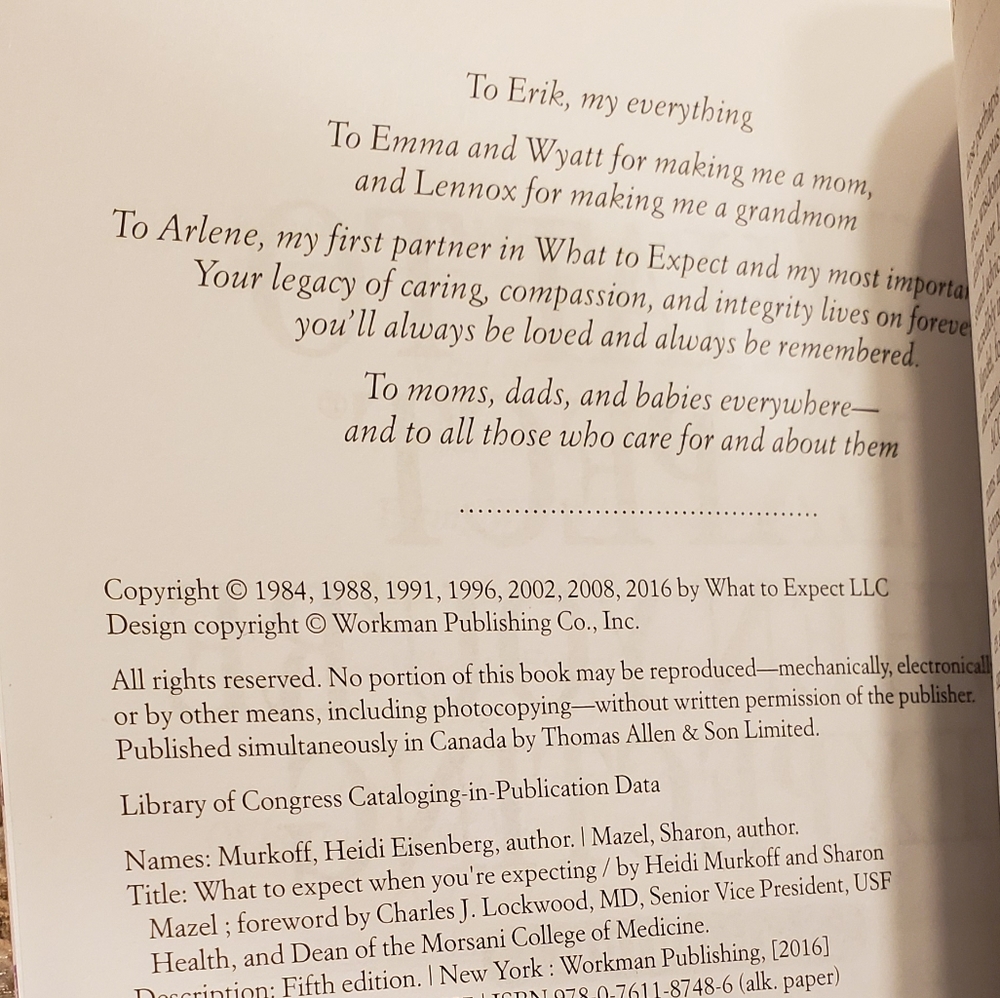 To Erik, my everything
To Emma and Wyatt for making me a mom,
and Lennox for making me a grandmom
To Arlene, my first partner in What to Expect and my most
Your legacy of caring, compassion, and integrity lives on
you'll always be loved and always be remembered.
To moms, dads, and babies everywhere—
and to all those who care for and about them
Copyright © 1984, 1988, 1991, 1996, 2002, 2008, 2016 by What to Expect LLC
Design copyright © Workman Publishing Co., Inc.
All rights reserved. No portion of this book may be reproduced—mechanically,
or by other means, including photocopying—without written permission of the publisher.
Published simultaneously in Canada by Thomas Allen & Son Limited.
Library of Congress Cataloging-in-Publication Data
Names: Murkoff, Heidi Eisenberg, author. | Mazel, Sharon, author.
Title: What to expect when you're expecting / by Heidi Murkoff and Sharon
Mazel ; foreword by Charles J. Lockwood, MD, Senior Vice President, USF
Health, and Dean of the Morsani College of Medicine.
Description: Fifth edition. | New York : Workman Publishing, [2016]
| ISBN 978-0-7611-8748-6 (alk. paper)